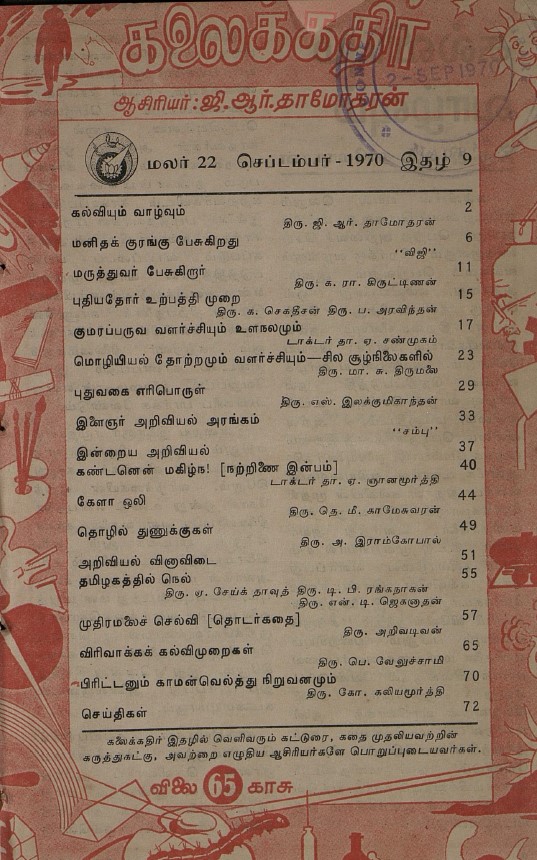 கலைக்கதிர்
2-SEP 1970
ஆசிரியர் : ஜி. ஆர். தாமோதரன்
மலர் 22 செப்டம்பர் - 1970 இதழ் 9
கல்வியும் வாழ்வும் 2
திரு. ஜி. ஆர். தாமோதரன்
மனிதக் குரங்கு பேசுகிறது 6
"விஜி"
மருத்துவர் பேசுகிறார் 11
திரு. க. ரா. கிருட்டிணன்
புதியதோர் உற்பத்தி முறை 15
திரு. க. செகதீசன் திரு. ப. அரவிந்தன்
குமரப்பருவ வளர்ச்சியும் உளநலமும் 17
டாக்டர் தா. ஏ. சண்முகம்
மொழியியல் தோற்றமும் வளர்ச்சியும்—சில சூழ்நிலைகளில் 23
திரு. மா. சு. திருமலை
புதுவகை எரிபொருள் 29
திரு. எஸ். இலக்குமிகாந்தன்
இளைஞர் அறிவியல் அரங்கம் 33
"சம்பு"
இன்றைய அறிவியல் 37
கண்டனென் மகிழ்ந! [நற்றிணை இன்பம்] 40
டாக்டர் தா. ஏ. ஞானமூர்த்தி
கேளா ஒலி 44
திரு. தெ. மீ. காமேசுவரன்
தொழில் துணுக்குகள் 49
திரு. அ. இராம்கோபால்
அறிவியல் வினாவிடை 51
தமிழகத்தில் நெல் 55
திரு. ஏ. சேய்க் தாவுத் திரு. டி. பி. ரங்கநாகன்
திரு. என். டி. ஜெகனாதன்
முதிரமலைச் செல்வி [தொடர்கதை] 57
திரு. அறிவடிவன்
விரிவாக்கக் கல்விமுறைகள் 65
திரு. பெ. வேலுச்சாமி
பிரிட்டனும் காமன்வெல்த்து நிறுவனமும் 70
திரு. கோ. கலியமூர்த்தி
செய்திகள் 72
கலைக்கதிர் இதழில் வெளிவரும் கட்டுரை, கதை முதலியவற்றின்
கருத்துகட்கு, அவற்றை எழுதிய ஆசிரியர்களே பொறுப்புடையவர்கள்.
விலை 65 காசு